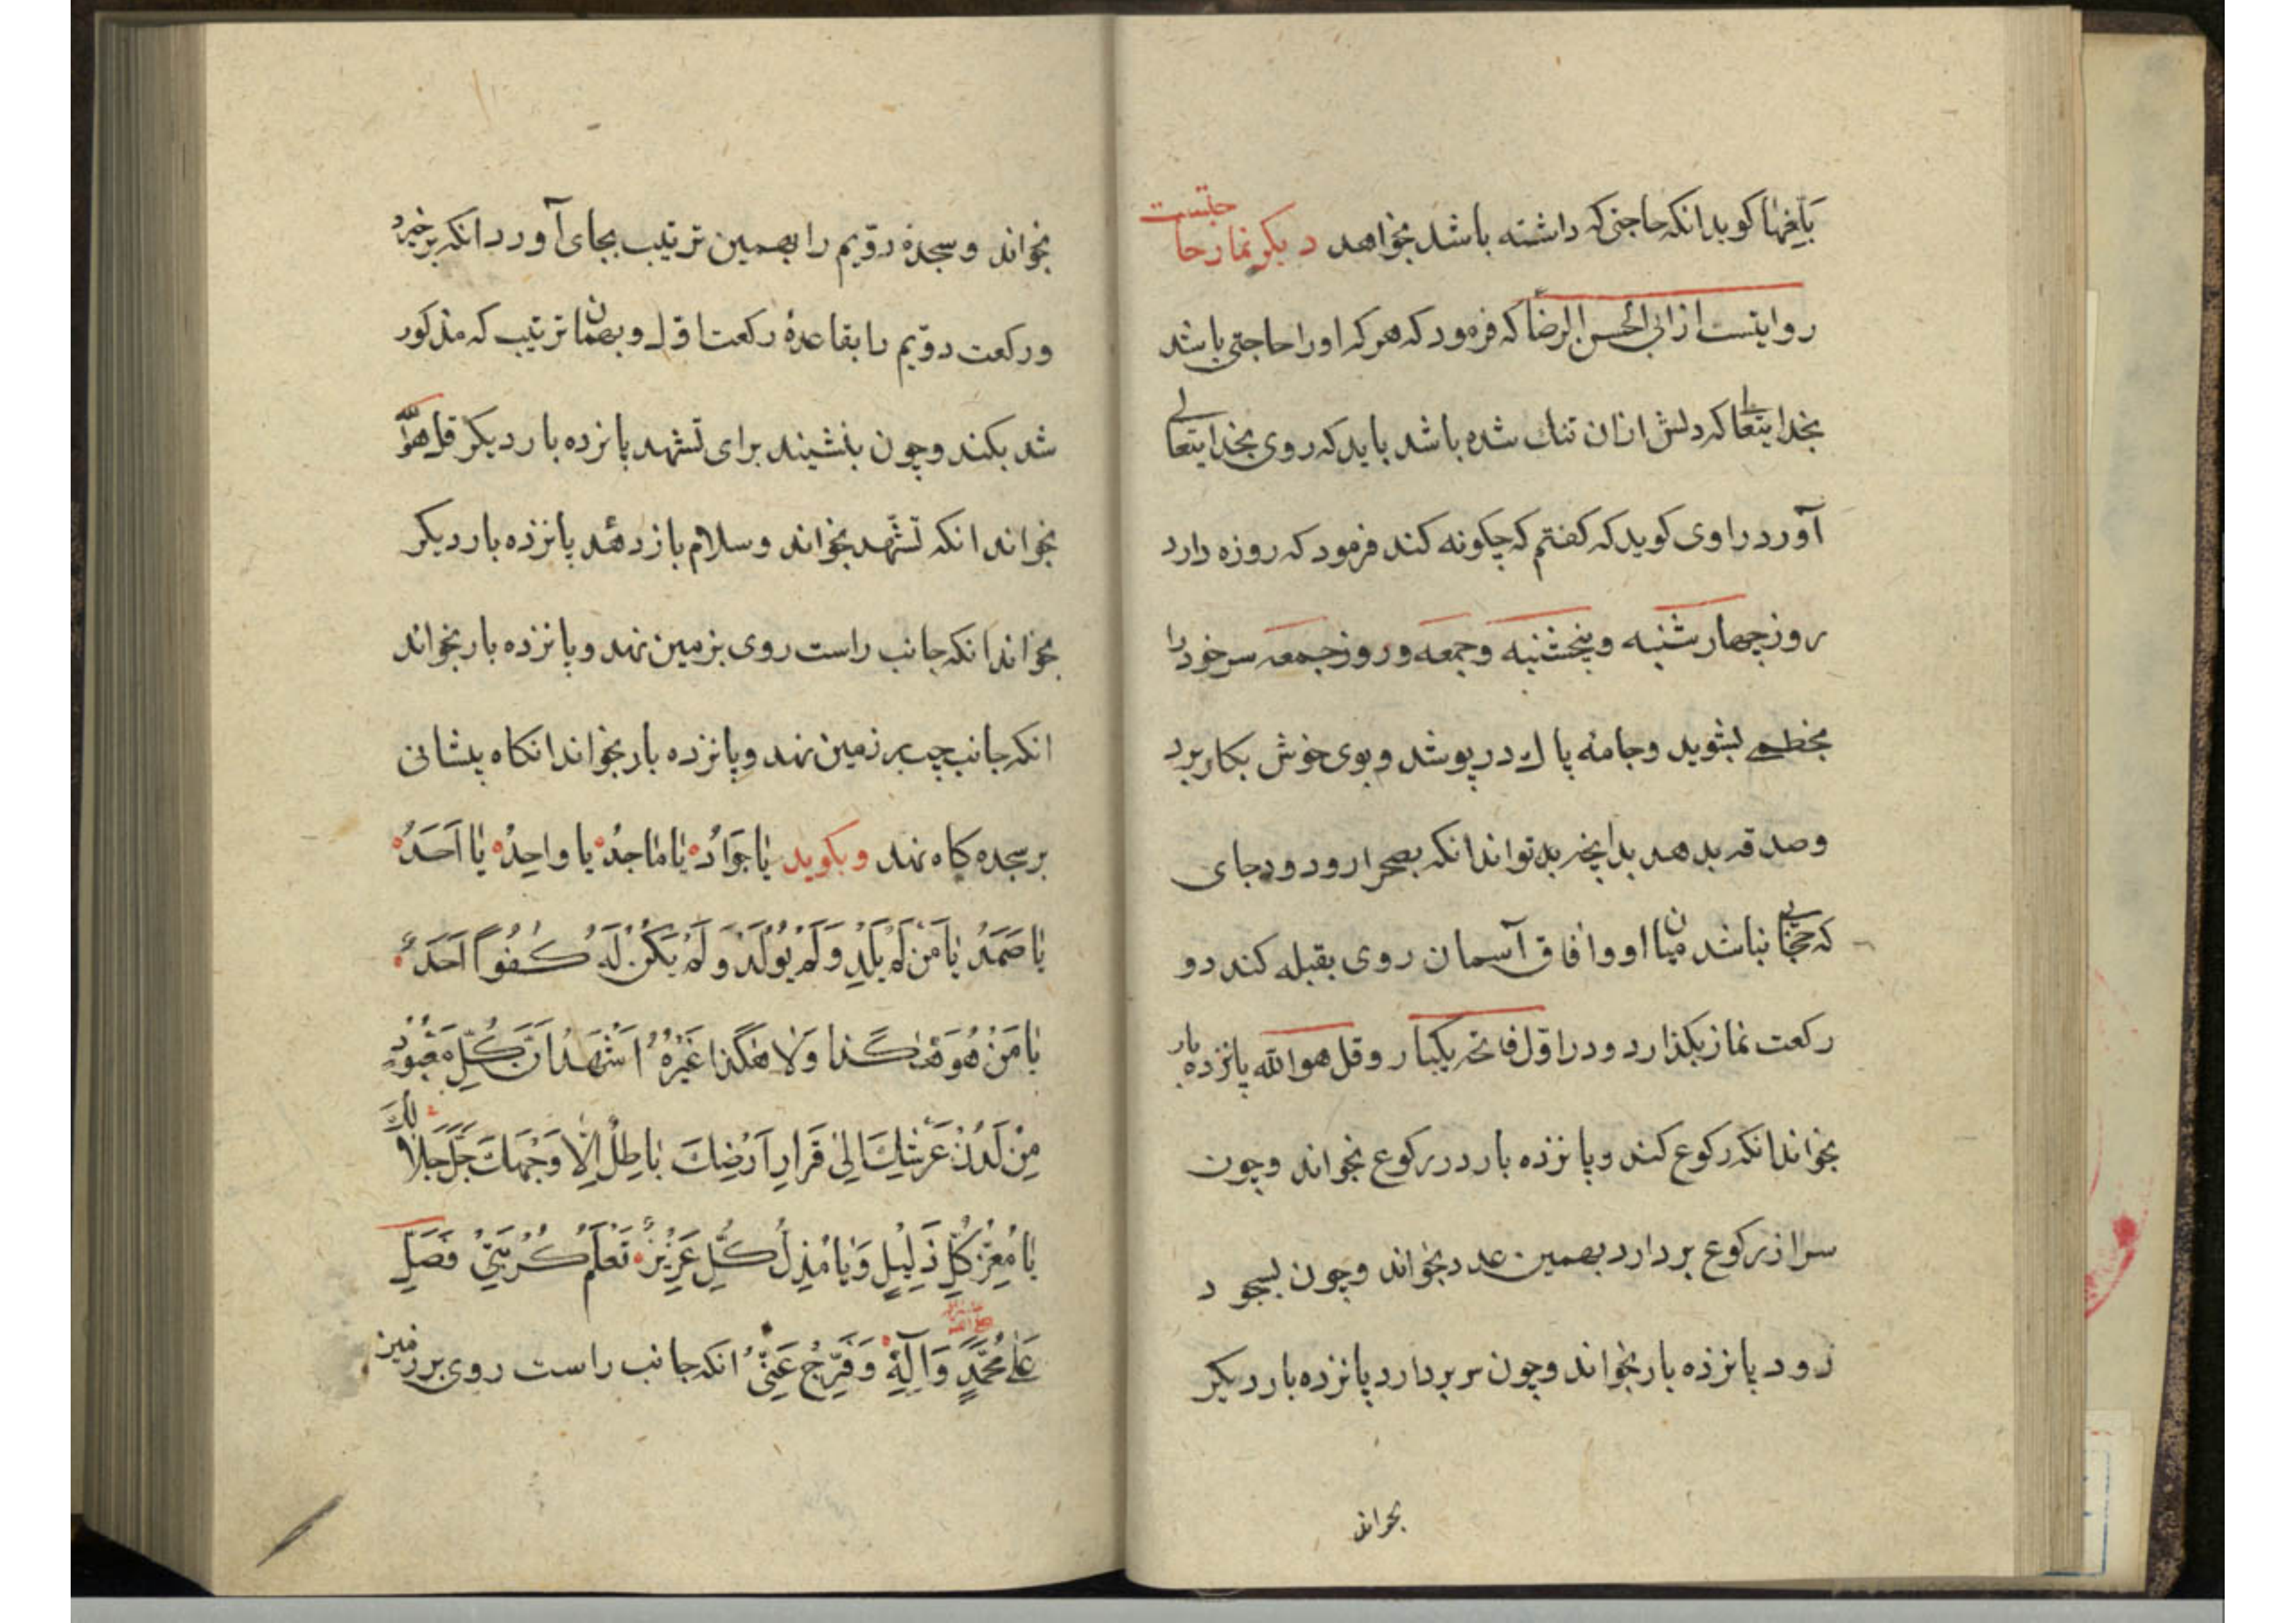 بَافِیهٰا کوید انکه حاجتی که داشته باشد بخواهد دیکر نماز حاجتست
روایتست از ابی الحسن الرضا ع که فرمود که هر که اورا حاجتی باشد
بخدایتعالی که دلش ازان تنك شده باشد باید که روی بخدایتعالی
آورد راوی کوید که کفتم که چکونه کند فرمود که روزه دارد
روز چهارشنبه وپنجشنبه وجمعه وروز جمعه سر خود را
بخطمی بشوید وجامه پاك درپوشد وبوی خوش بکار برد
وصدقه بدهد بدانچه بد تواند انکه بصحرا رود ودجای
که حجابی نباشد میان او وافاق آسمان روی بقبله کند دو
رکعت نماز بکذارد ودر اوّل فاتحه یکبار وقل هو الله پانزده بار
بخواند انکه رکوع کند وپانزده بار در رکوع بخواند وچون
سر از رکوع بردارد بهمین عدد بخواند وچون بسجود
رود پانزده بار بخواند وچون سر بردارد پانزده بار دیکر
بخواند
بخواند وسجدهٔ دوّیم را بهمین ترتیب بجای آورد انکه برخیزد
ورکعت دوّیم را بقاعدهٔ رکعت اوّل وبهمان ترتیب که مذکور
شد بکند وچون بنشیند برای تشهد پانزده بار دیکر قل هو الله
بخواند انکه تشّهد بخواند وسلام باز دهد پانزده بار دیکر
بخواند انکه جانب راست روی بزمین نهد وپانزده بار بخواند
انکه جانب چپ بر زمین نهد وپانزده بار بخواند انکاه پیشانی
بر سجده کاه نهد وبکوید یٰا جَوٰادُ یٰا مٰاجِدُ یا واحِدُ یٰا اَحَدُ
یٰا صَمَدُ یٰا مَنْ لَمْ یَلِدْ وَلَمْ یُولَدْ وَلَمْ یَکُنْ لَهُ کُفُواً اَحَدٌ
یٰا مَنْ هُوَ هٰکَذا وَلٰا هٰکَذا غَیْرُهُ اَشْهَدُ اَنَّ کُلَّ مَعْبُودٍ
مِنْ لَدُنْ عَرْشِكَ اِلیٰ قَرٰارِ اَرْضِكَ بٰاطِلٌ اِلّٰا وَجْهَكَ جَلَّ جَلٰالُكَ
یٰا مُعِزَّ کُلِّ ذَلِیلٍ وَیٰا مُذِلَّ کُلِّ عَزِیزٍ تَعْلَمُ کُرْبَتِیْ فَصَلِّ
عَلٰی مُحَمَّدٍ وَآلِهِ وَفَرِّجْ عَنِّیْ انکه جانب راست روی بر زمین